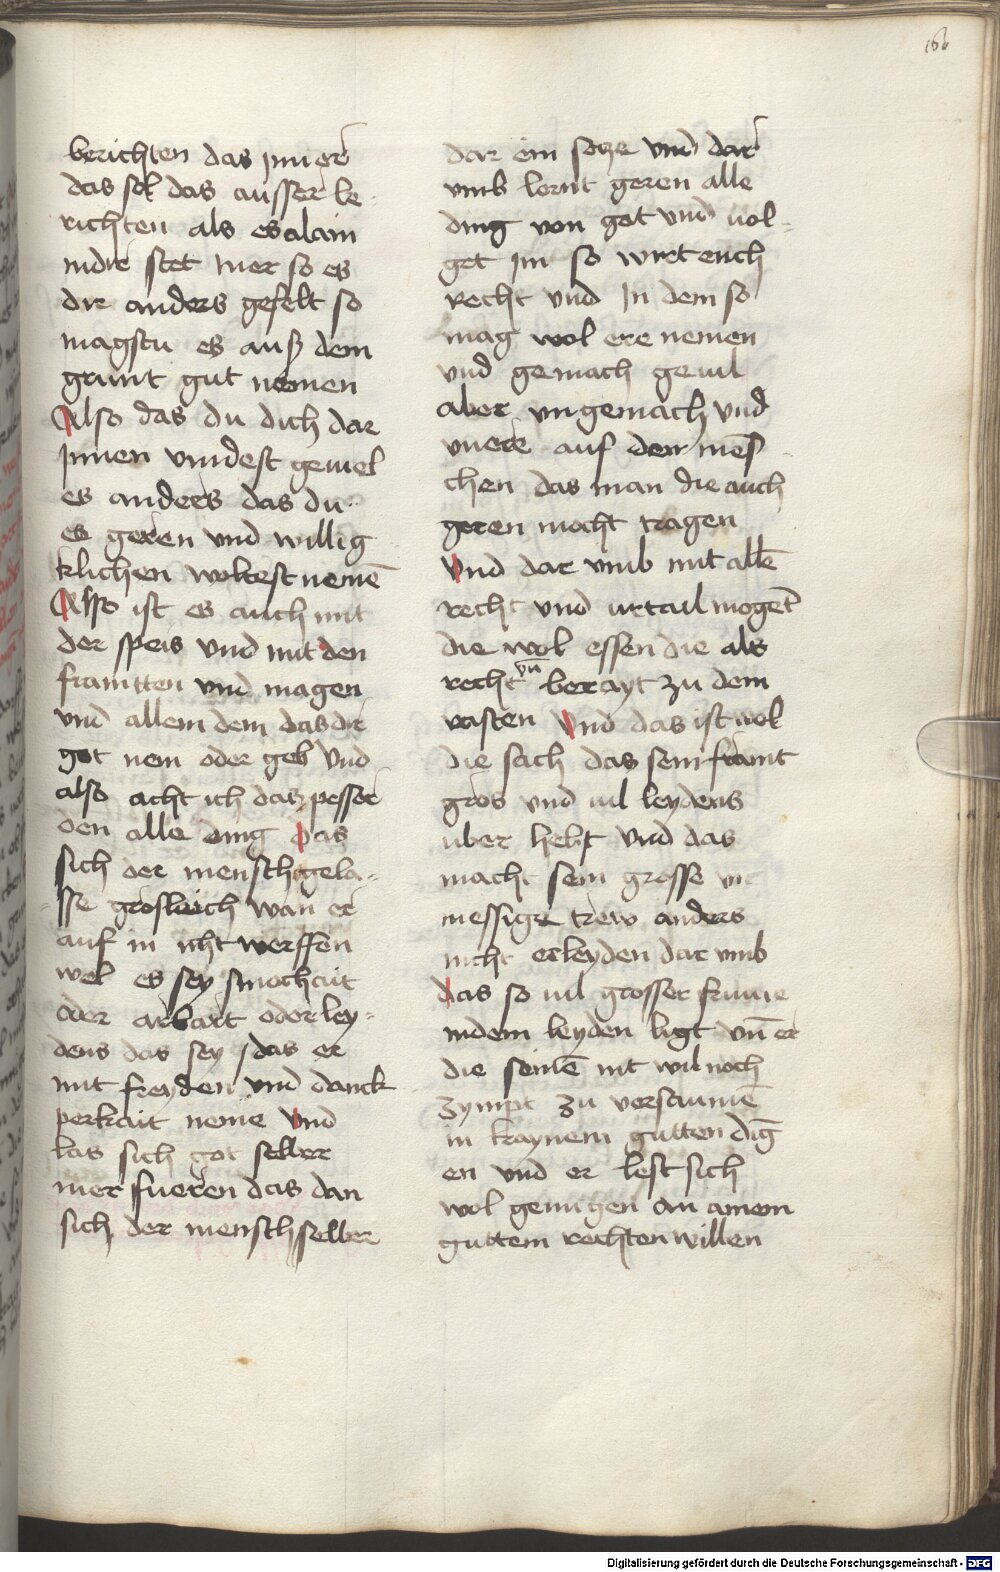 166
berichten das Inner
das sol das ausser be
richten als es alain
in dir stet Mer so es
dir anders gefelt so
magstu es auß dem
grunt gut nemen
Also das du dich dar
Innen vindest geuiel
es anders das du
es geren vnd willig
klichen woltest nemē
Also ist es auch mit
der speis vnd mit den
framtten vnd magen
vnd allem dem das dir
got nem oder geb vnd
also acht ich daz pesser
den alle ding das
sich der mensch gela-
sse grosleich wan er
auf in icht werffen
wel es sey smochait
oder arbait oder ley-
dens das sey das er
mit freyden vnd danck
perkait neme vnd
las sich got selber
mer fueren das dan
sich der mensch selber
dar ein secze vnd dar
vmb lernt geren alle
ding von got vnd uol-
get im so wirt euch
recht vnd In dem so
mag wol ere nemen
vnd gemach geuil
aber vngemach vnd
vnere auf den mēs
chen das man die auch
geren mocht tragen
Vnd dar vmb mit allē
recht vnd urtail mogēt
die wol essen die als
recht vn̄ berayt zu dem
vasten Vnd das ist wol
die sach das sein framt
gros vnd uil leydens
uber hebt vnd das
macht sein grosse vn
messige trew anders
nicht erleyden dar vmb
das so uil grosser frume
in dem leyden ligt vn̄ er
die seinē nit wil noch
zympt zu versaumē
in kaynem gutten dīg
en vnd er lest sich
wol genugen an ainem
guttem rechten willen
Digitalisierung gefördert durch die Deutsche Forschungsgemeinschaft - DFG